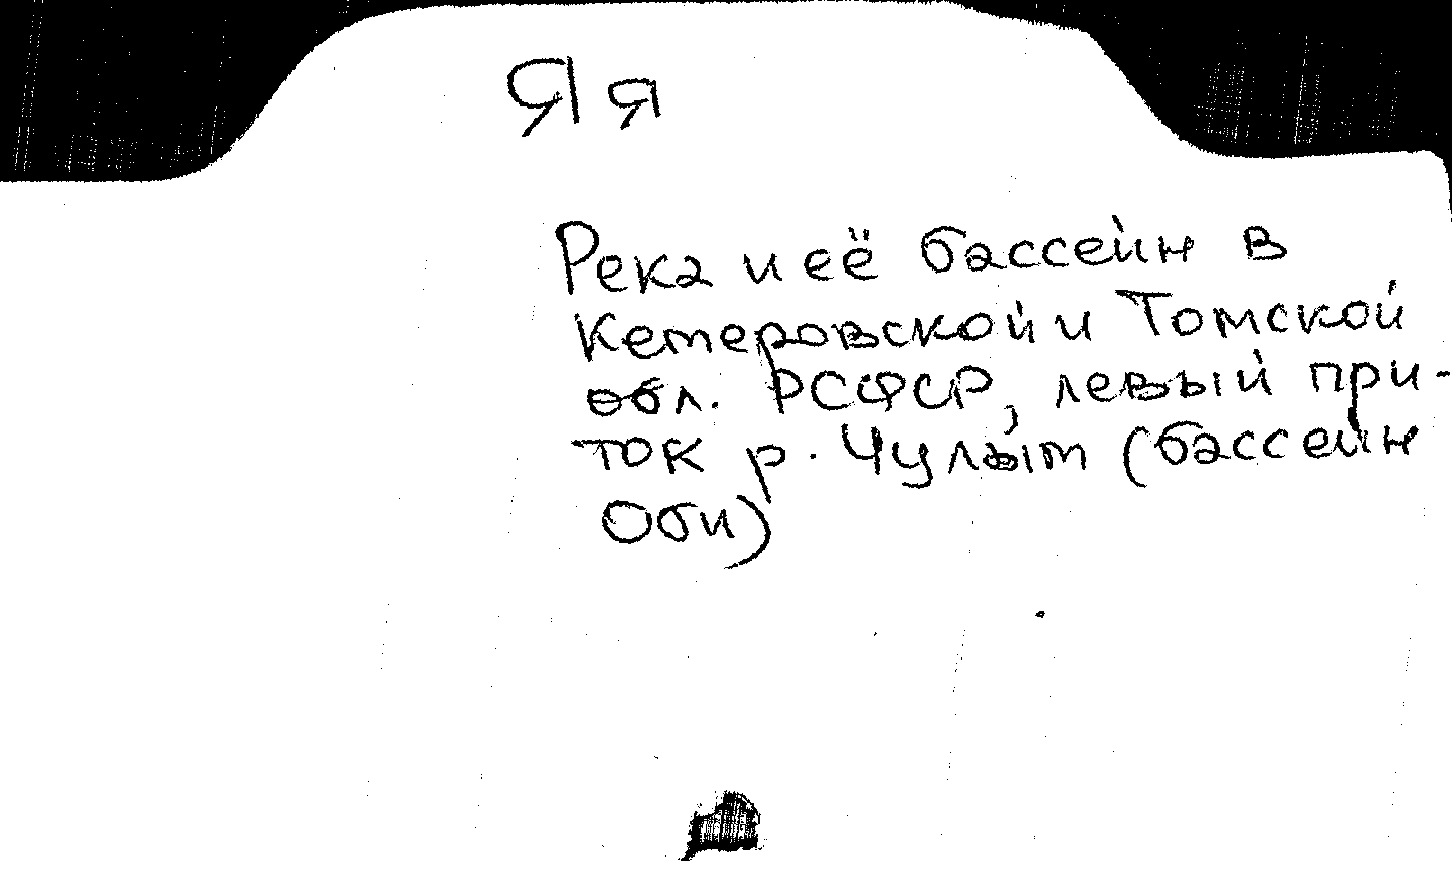 Яя
Река и её бассейн в
Кемеровской и Томской
обл. РСФСР, левый при-
ток р. Чулым (бассейн
Оби)